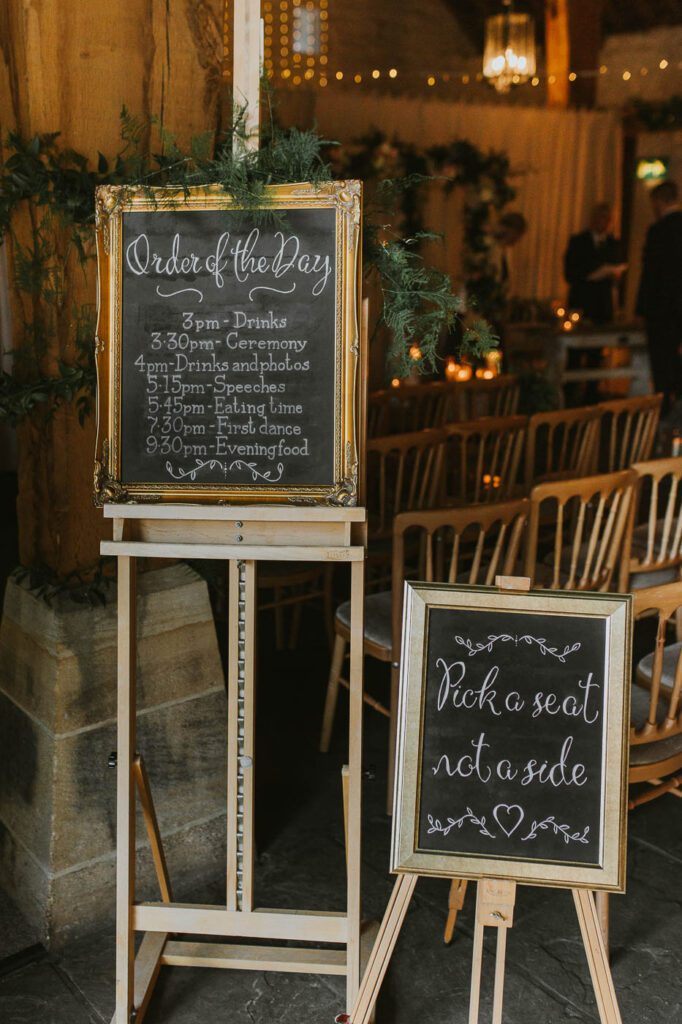 Order of the Day
3pm - Drinks
3.30pm - Ceremony
4pm - Drinks and photos
5.15pm - Speeches
5.45pm - Eating time
7.30pm - First dance
9.30pm - Evening food
Pick a seat
not a side